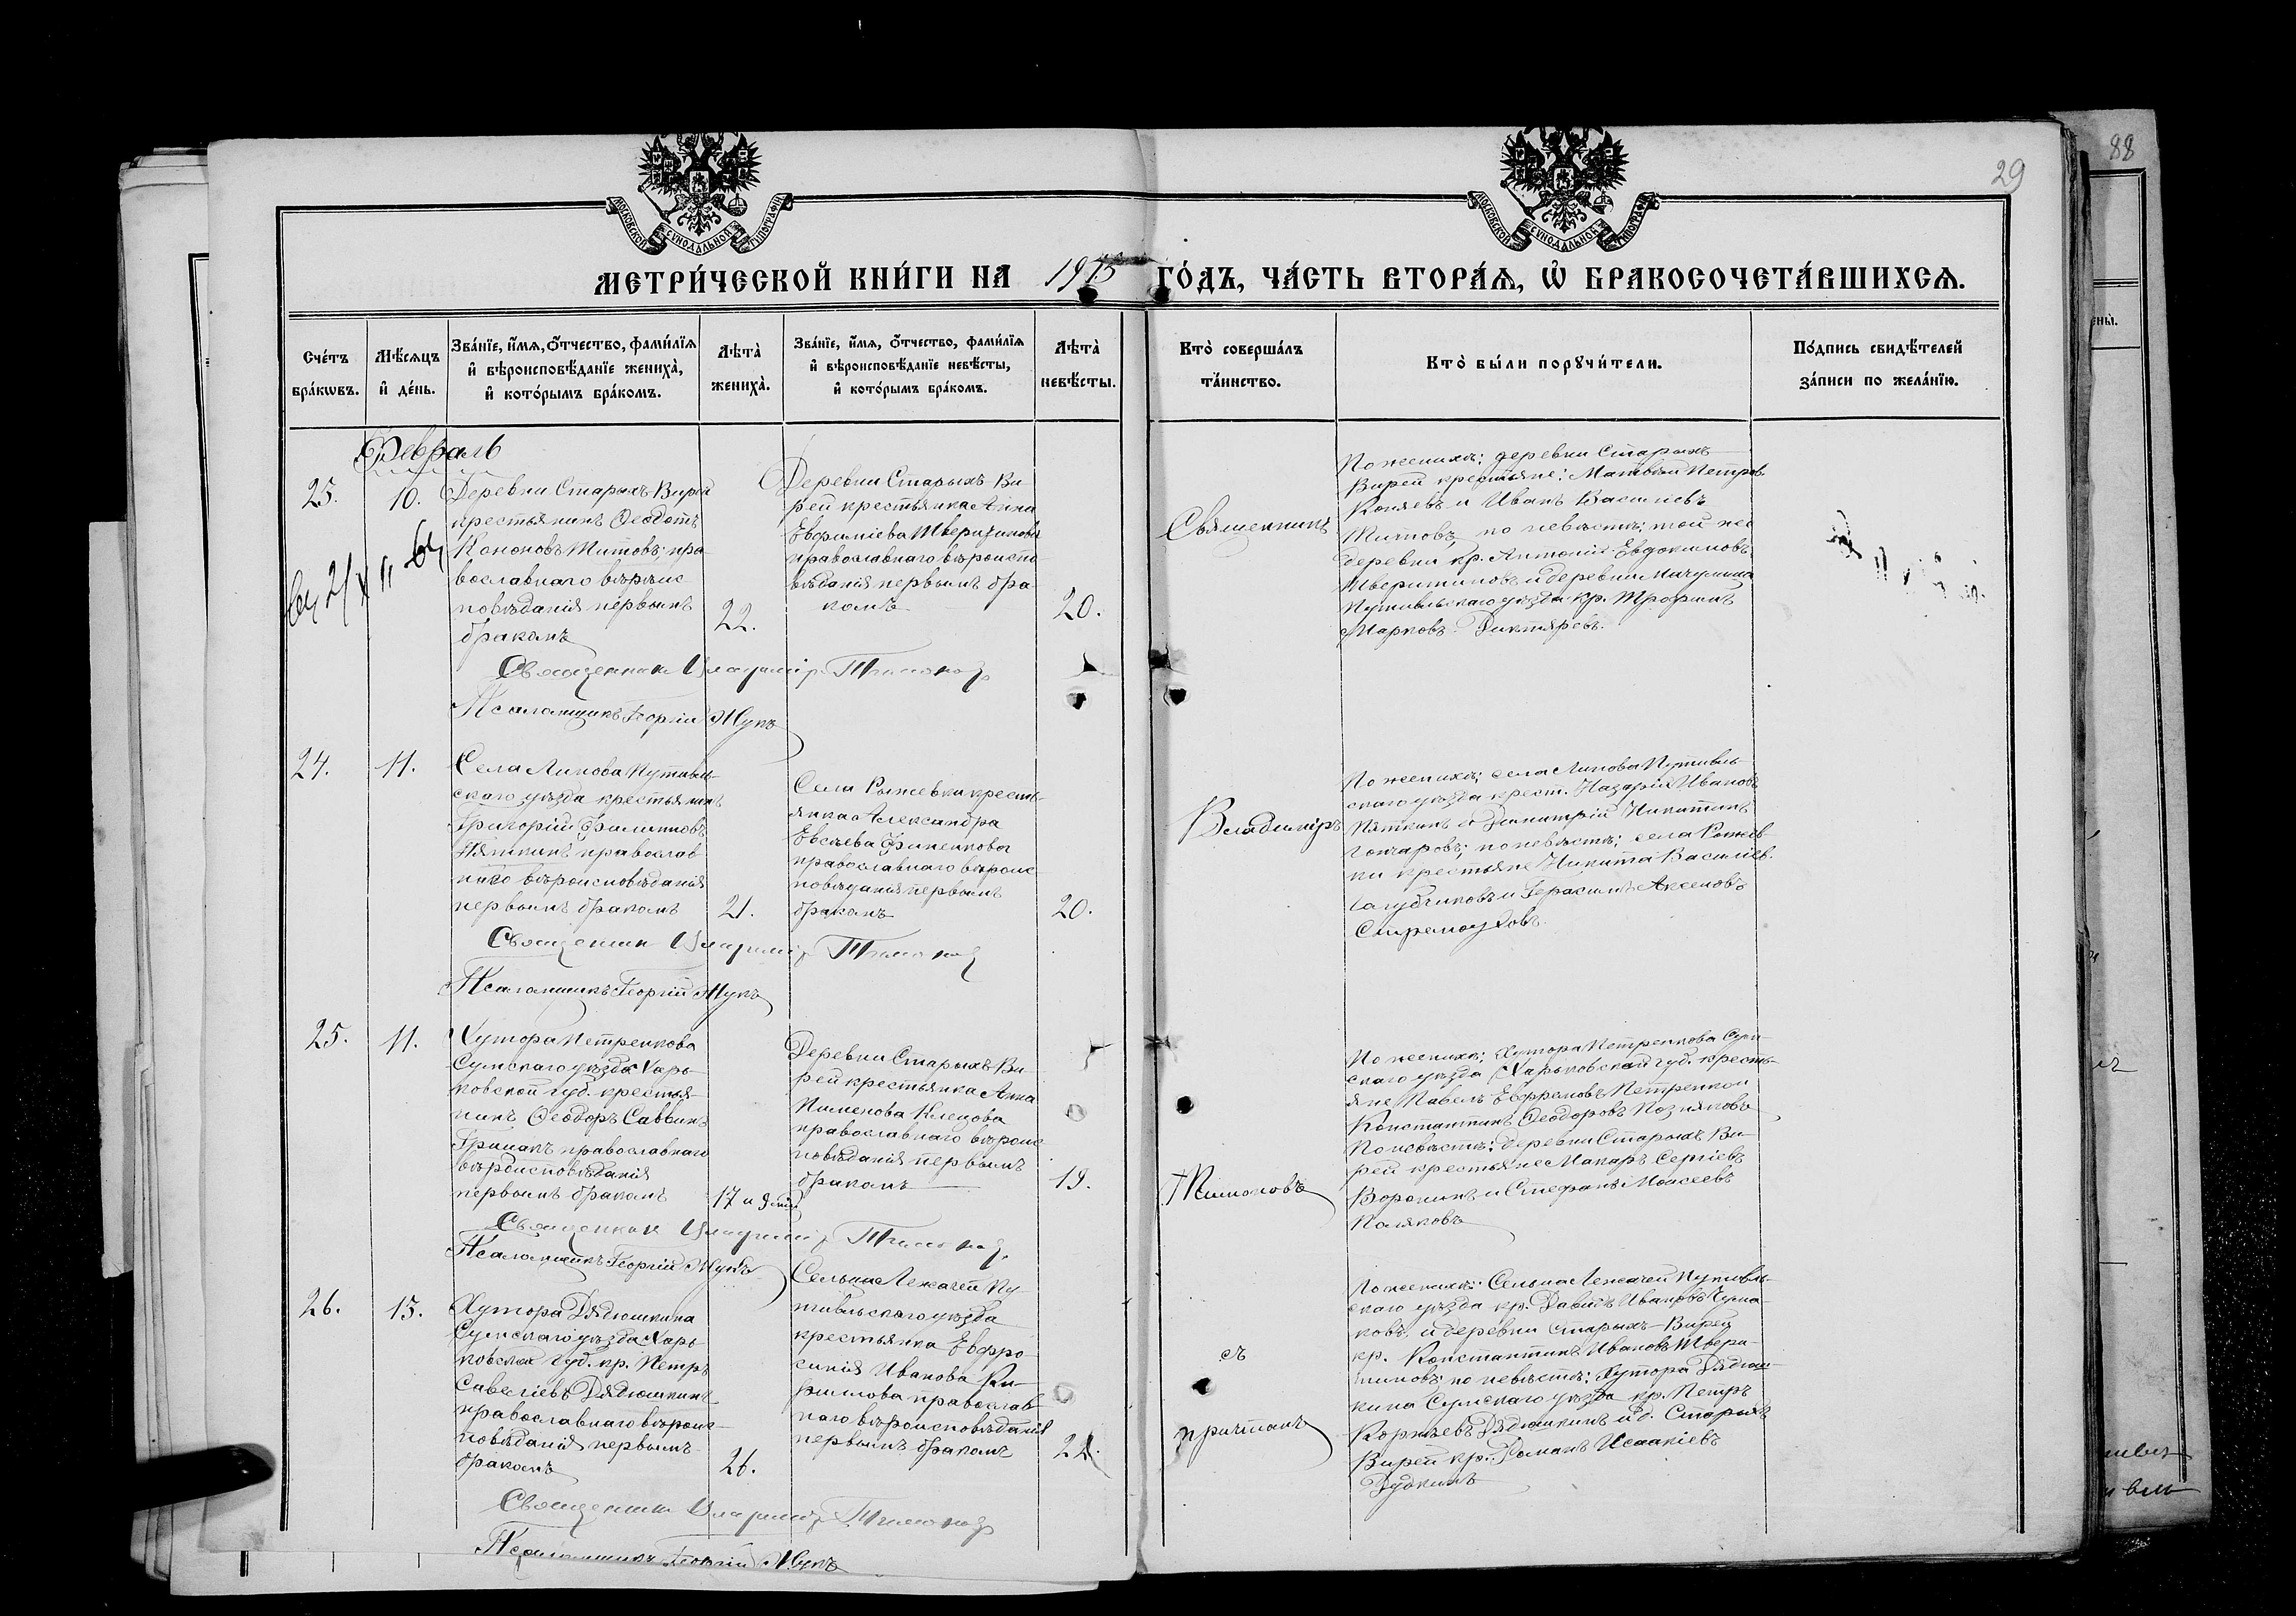 29
88
МОСКОВСКОЙ СѴНОДАЛЬНОЙ ТИПОГРАФІИ
МОСКОВСКОЙ СѴНОДАЛЬНОЙ ТИПОГРАФІИ
МЕТРИ́ЧЕСКОЙ КНИ́ГИ НА 1915 ГО́ДЪ, ЧА́СТЬ ВТОРА́Ѧ, Ѡ҆ БРАКОСОЧЕТА́ВШИХСѦ.
Сче́тъ бра́кѡвъ.
Мѣ́сѧцъ и҆ де́нь.
Зва́нїе, и҆́мѧ, ѻ҆́тчество, фами́лїѧ и҆ вѣроисповѣ́данїе жениха̀, и҆ кото́рымъ бра́комъ.
Лѣта̀ жениха̀.
Зва́нїе, и҆́мѧ, ѻ҆́тчество, фами́лїѧ и҆ вѣроисповѣ́данїе невѣ́сты, и҆ кото́рымъ бра́комъ.
Лѣта̀ невѣ́сты.
Кто̀ соверша́лъ та́инство.
Кто̀ бы́ли порꙋчи́тели.
По́дпись свидѣ́телей за́писи по жела́нїю.
Февраль
25.
10.
Деревни Старыхъ-Вирей
крестьянинъ Ѳеодотъ
Кононовъ Титовъ, пра
вославнаго вѣроис
повѣданія первымъ
бракомъ
22.
Деревни Старыхъ Ви-
рей крестьянка Анна
Евфиміева Тверитинова
православнаго вѣроиспо
вѣданія первымъ бра
комъ
20.
Священникъ
По женихѣ: деревни Старыхъ
Вирей крестьяне: Матвѣй Петров.
Коняевъ и Иванъ Василіевъ
Титовъ, по невѣстѣ: той же
деревни кр. Антоній Евдокимовъ
Тверитиновъ и деревни
Путивльскаго уѣзда кр. Трофимъ
Марковъ Диктяревъ.
Священникъ Владиміръ Тимоновъ
Псаломщикъ Георгій Жукъ
24.
11.
Села Линова Путивль-
скаго уѣзда крестьянинъ
Григорій Филипповъ
Пяткинъ православ
наго вѣроисповѣданія
первымъ бракомъ
21.
Села Рыжевки кресть-
янка Александра
Евсѣева Финенкова
православнаго вѣроис
повѣданія первымъ
бракомъ
20.
Владиміръ
По женихѣ: села Линова Путивль-
скаго уѣзда крест. Назарій Ивановъ
Пяткинъ и Димитрій Никитинъ
Гончаровъ; по невѣстѣ: села Рыжев-
ки крестьяне Никита Василіев.
и Герасимъ Аксеновъ
Священникъ Владиміръ Тимоновъ
Псаломщикъ Георгій Жукъ
25.
11.
Хутора Петренкова
Сумскаго уѣзда Харь-
ковской губ. крестья-
нинъ Ѳеодоръ Саввинъ
Грицакъ православнаго
вѣроисповѣданія
первымъ бракомъ
17 и
Деревни Старыхъ Ви-
рей крестьянка Анна
Пименова Клецова
православнаго вѣроис
повѣданія первымъ
бракомъ
19.
Тимоновъ
По женихѣ: Хутора Петренкова Сум-
скаго уѣзда Харьковской губ. кресть-
яне Павелъ Ефремовъ Петренко и
Константинъ Ѳеодоровъ Позняковъ
По невѣстѣ: деревни Старыхъ Ви-
рей крестьяне Макаръ Сергіевъ
Воронинъ и Стефанъ Моисеевъ
Поляковъ
Священникъ Владиміръ Тимоновъ
Псаломщикъ Георгій Жукъ
26.
15.
Хутора Дядюшкина
Сумскаго уѣзда Харь
ковской губ. кр. Петръ
Савеліевъ Дядюшкинъ
православнаго вѣроис-
повѣданія первымъ
бракомъ
26.
Сельца Лежачей Пу-
тивльскаго уѣзда
крестьянка Евфро
синія Иванова Ки-
риллова православ
наго вѣроисповѣданія
первымъ бракомъ
съ
причтомъ
По женихѣ: Сельца Лежачей Путивль-
скаго уѣзда кр. Давидъ Ивановъ Чума-
ковъ и деревни Старыхъ-Вирей
кр. Константинъ Ивановъ Твери-
тиновъ; по невѣстѣ: Хутора Дядюш-
кина Сумскаго уѣзда кр. Петръ
Корнѣевъ Дядюшкинъ и д. Старыхъ
Вирей кр. Романъ Исаакіевъ
Дудкинъ
Священникъ Владиміръ Тимоновъ
Псаломщикъ Георгій Жукъ